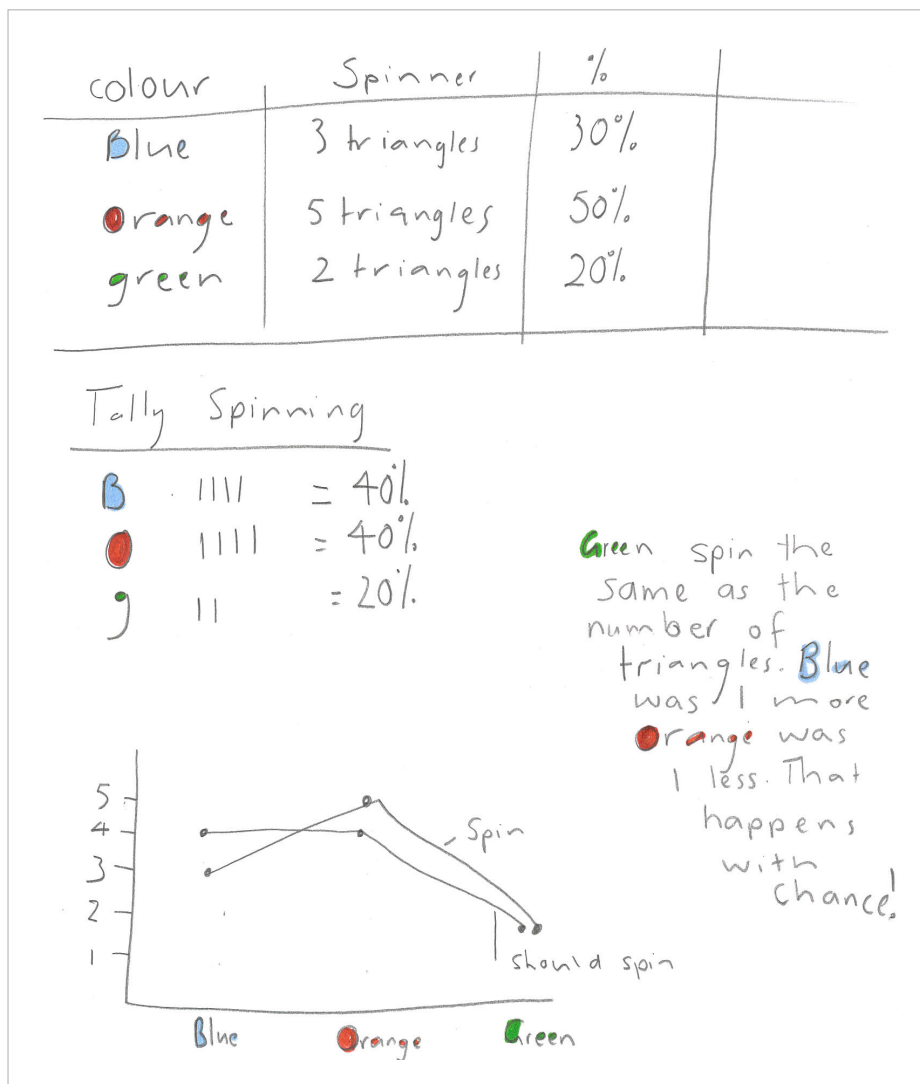 colour Spinner %
Blue 3 triangles 30%
Orange 5 triangles 50%
green 2 triangles 20%
Tally Spinning
B |||| = 40%
O |||| = 40%
g || = 20%
Green spin the
same as the
number of
triangles. Blue
was 1 more
Orange was
1 less. That
happens
with
chance!
5
4
3
2
1
Spin
should spin
Blue Orange Green